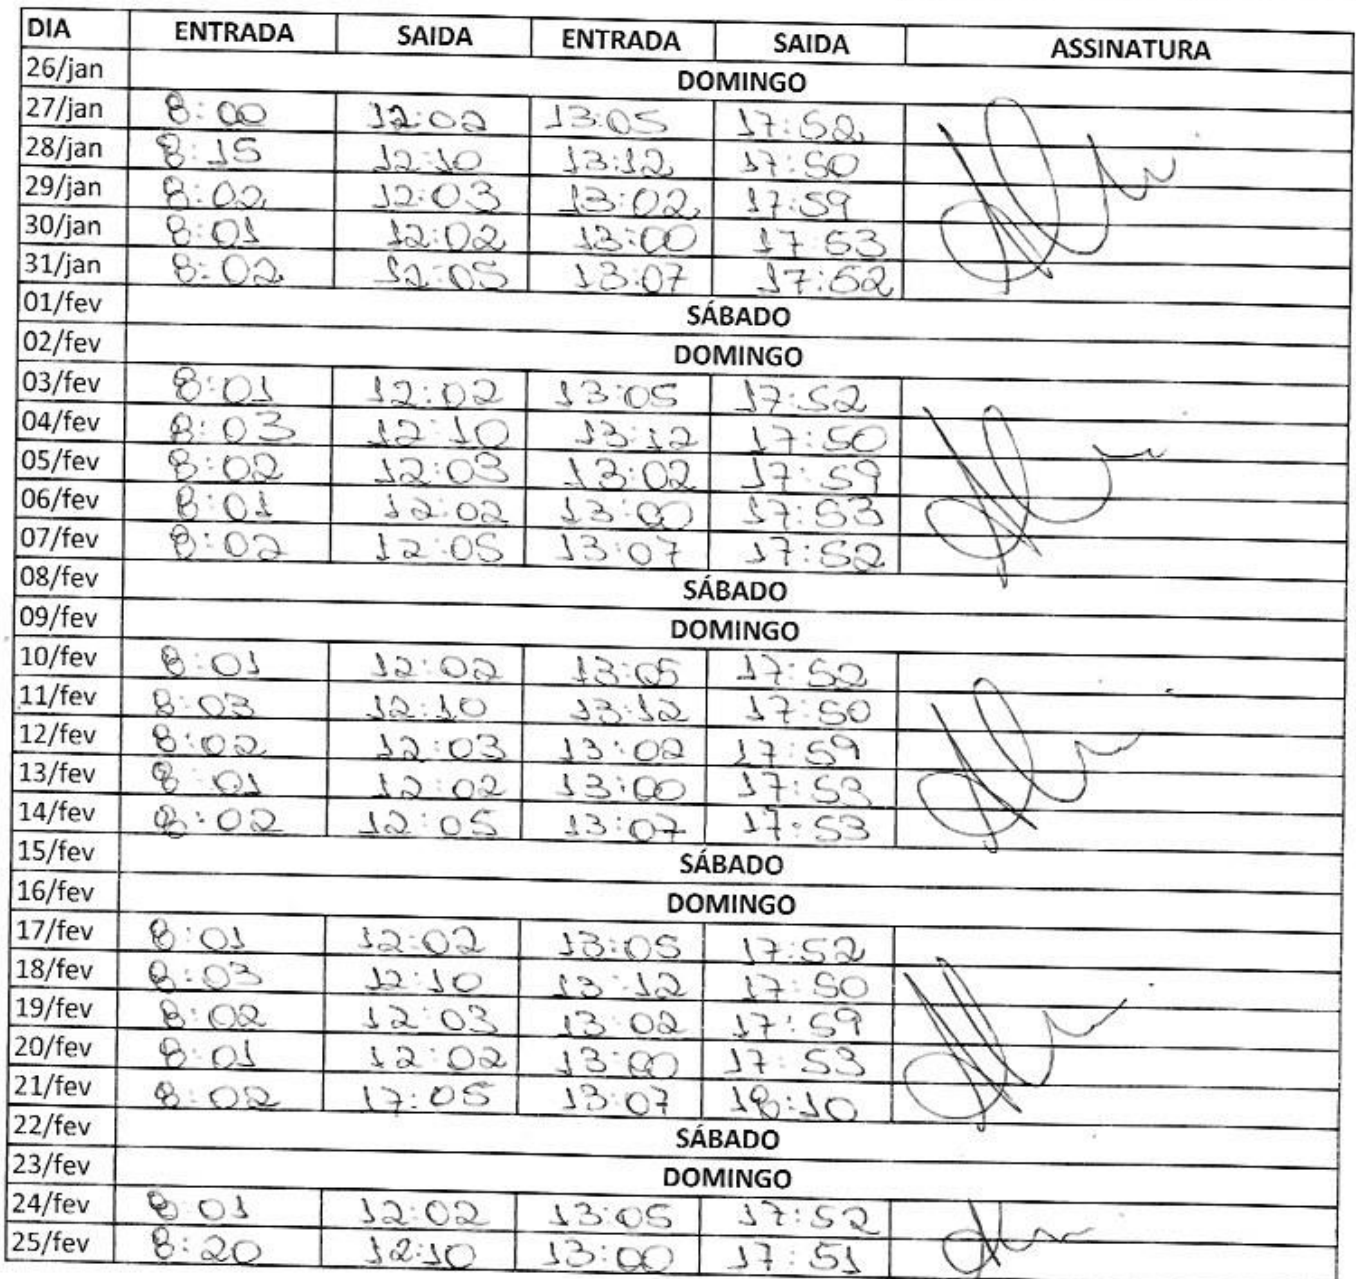 DIA ENTRADA SAIDA ENTRADA SAIDA ASSINATURA
26/jan DOMINGO
27/jan 8:00 12:02 13:05 17:52
28/jan 8:15 12:10 13:12 17:50
29/jan 8:02 12:03 13:02 17:59
30/jan 8:01 12:02 13:00 17:53
31/jan 8:02 12:05 13:07 17:52
01/fev SÁBADO
02/fev DOMINGO
03/fev 8:01 12:02 13:05 17:52
04/fev 8:03 12:10 13:12 17:50
05/fev 8:02 12:03 13:02 17:59
06/fev 8:01 12:02 13:00 17:53
07/fev 8:02 12:05 13:07 17:52
08/fev SÁBADO
09/fev DOMINGO
10/fev 8:01 12:02 13:05 17:52
11/fev 8:03 12:10 13:12 17:50
12/fev 8:02 12:03 13:02 17:59
13/fev 8:01 12:02 13:00 17:53
14/fev 8:02 12:05 13:07 17:53
15/fev SÁBADO
16/fev DOMINGO
17/fev 8:01 12:02 13:05 17:52
18/fev 8:03 12:10 13:12 17:50
19/fev 8:02 12:03 13:02 17:59
20/fev 8:01 12:02 13:00 17:53
21/fev 8:02 17:05 13:07 18:10
22/fev SÁBADO
23/fev DOMINGO
24/fev 8:01 12:02 13:05 17:52
25/fev 8:20 12:10 13:00 17:51